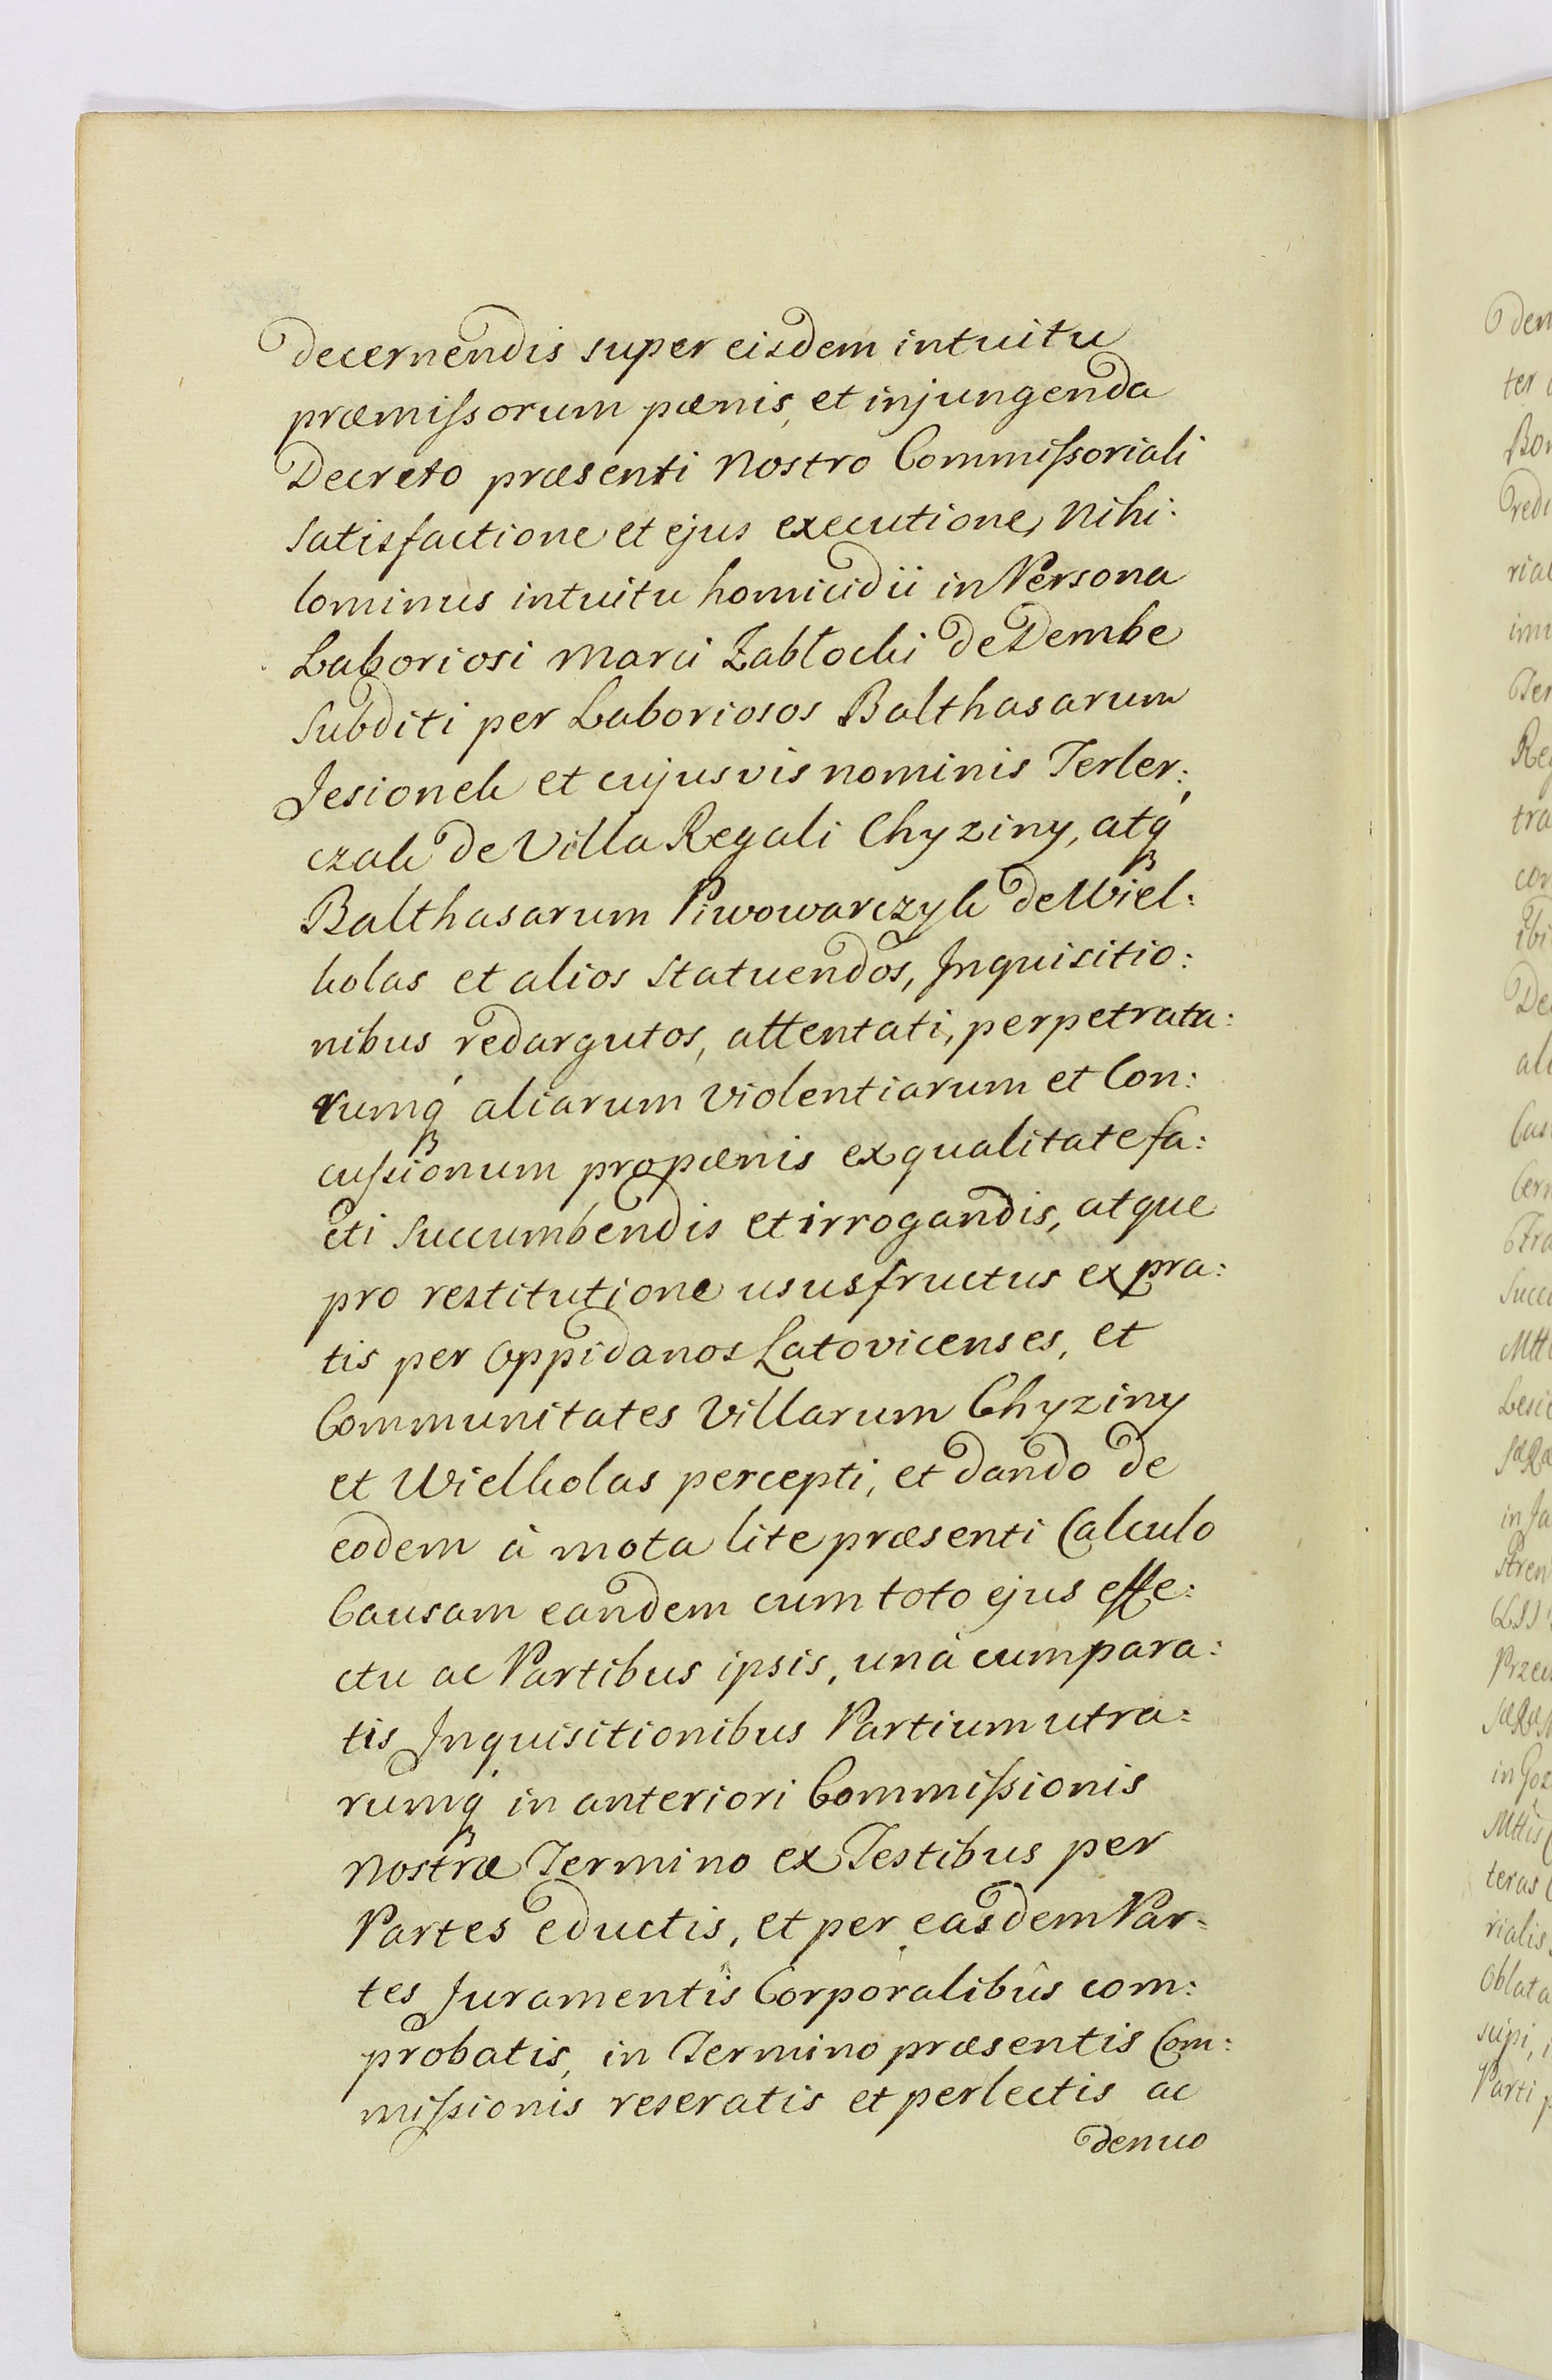 decernendis super eisdem intuitu
præmissorum pœnis, et injungenda
Decreto præsenti Nostro Commissoriali
satisfactione et ejus executione, Nihi:
lominus intuitu homicidii in Persona
Laboriosi Marci Zabłocki de Dembe
subditi per Laboriosos Balthasarum
Jesionek et cujusvis nominis Terler:
czak de Villa Regali Chyziny, atq́
Balthasarum Piwowarczyk de Wiel:
kolas et alios statuendos, Inquisitio:
nibus redargutos, attentati, perpetrata:
rumq́ aliarum violentiarum et Con:
cussionum pro pœnis ex qualitate fa:
cti succumbendis et irrogandis, atque
pro restitutione ususfructus ex pra:
tis per Oppidanos Latovicenses, et
Communitates Villarum Chyziny
et Wielkolas percepti, et dando de
eodem à mota lite præsenti Calculo
Causam eandem cum toto ejus effe:
ctu ac Partibus ipsis, unà cum para:
tis Inquisitionibus Partium utra:
rumq́ in anteriori Commissionis
Nostræ Termino ex Testibus per
Partes eductis, et per easdem Par:
tes Juramentis Corporalibûs com:
probatis, in Termino præsentis Com:
missionis reseratis et perlectis ac
denuo